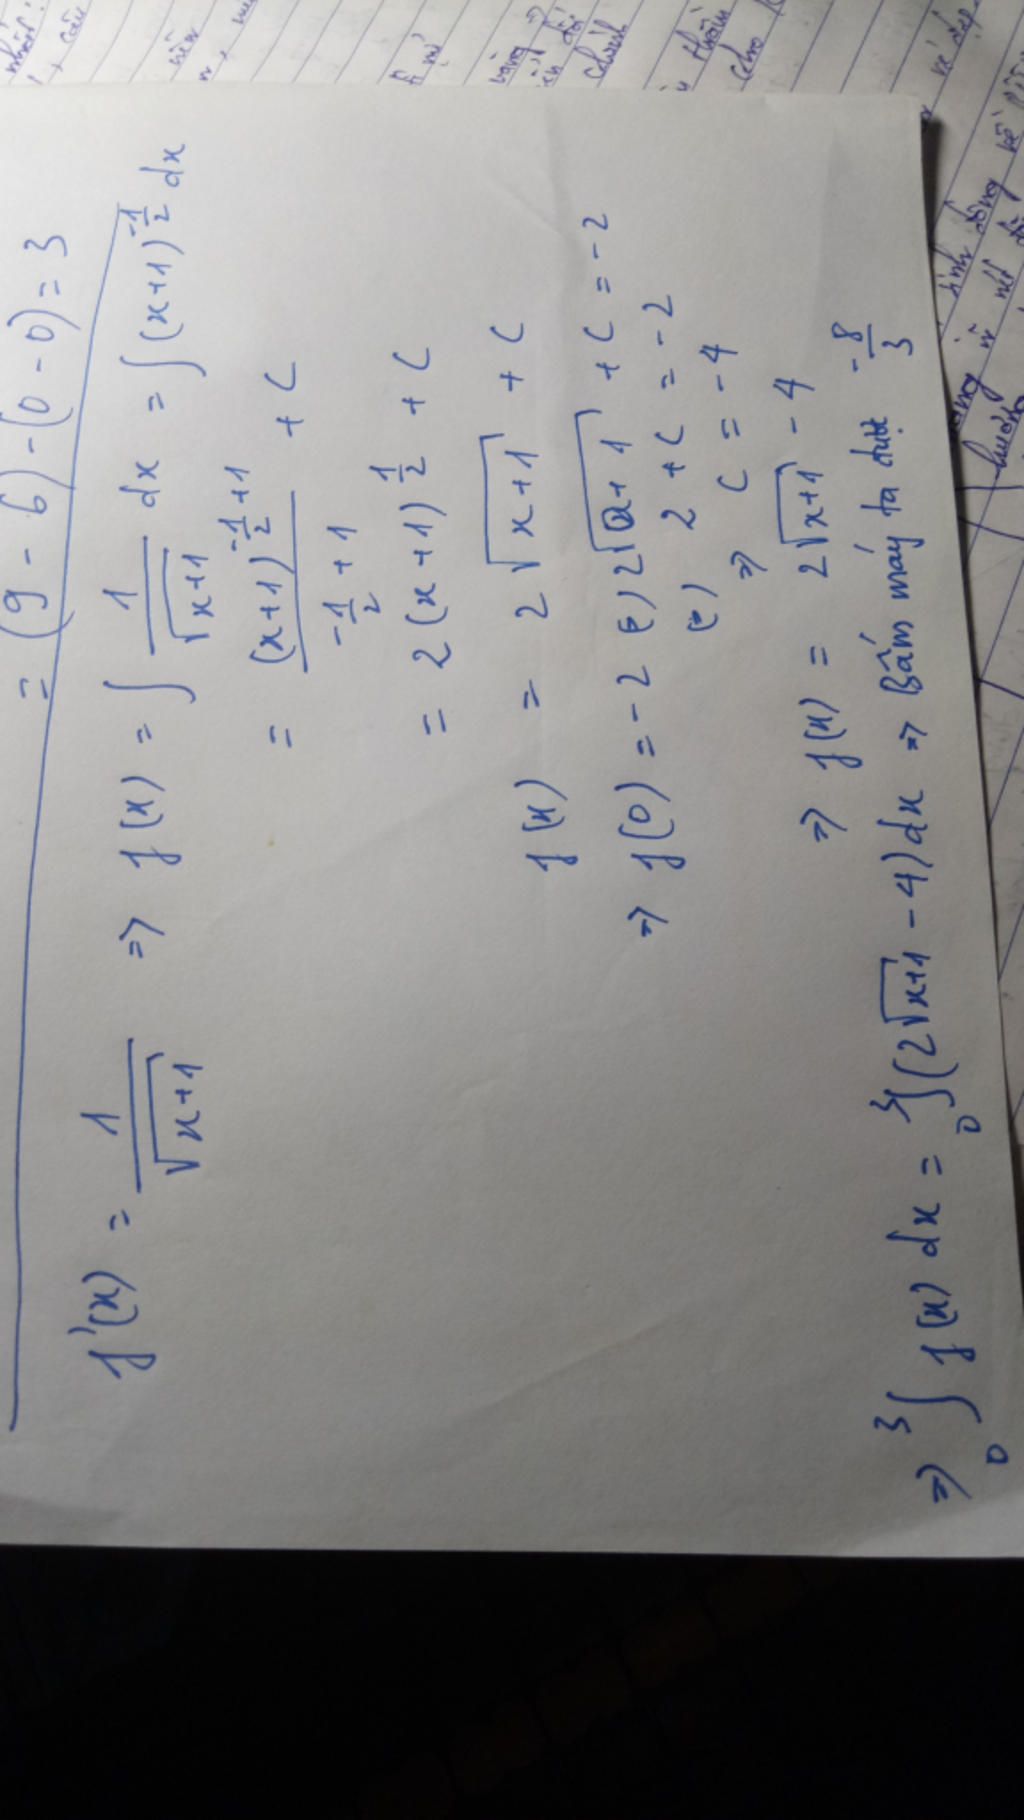 = (9 - 6) - (0 - 0) = 3
f'(x) = 1/√(x+1) => f(x) = ∫ 1/√(x+1) dx = ∫ (x+1)^(-1/2) dx
= (x+1)^(-1/2 + 1) / (-1/2 + 1) + C
= 2(x+1)^(1/2) + C
f(x) = 2√(x+1) + C
=> f(0) = -2 (=) 2√(0+1) + C = -2
(=) 2 + C = -2
=> C = -4
=> f(x) = 2√(x+1) - 4
=> ∫₀³ f(x) dx = ∫₀³ (2√(x+1) - 4) dx => Bấm máy ta được -8/3